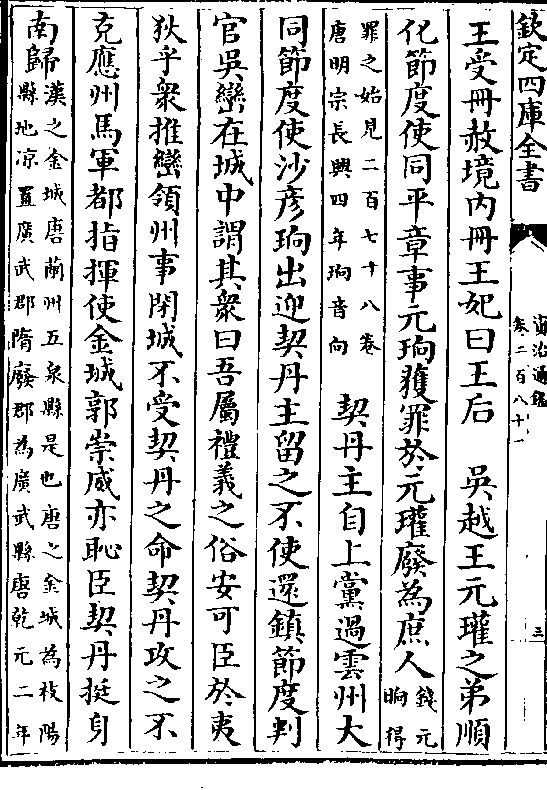 欽定四庫全書
資治通鑑
卷二百八十一
三
王受冊赦境内冊王妃曰王后　吳越王元瓘之弟順
化節度使同平章事元珦獲罪於元瓘廢為庶人錢元
珦得
罪之始見二百七十八卷
唐明宗長興四年珦音向
契丹主自上黨過雲州大
同節度使沙彦珣出迎契丹主留之不使還鎮節度判
官吳巒在城中謂其衆曰吾屬禮義之俗安可臣於夷
狄乎衆推巒領州事閉城不受契丹之命契丹攻之不
克應州馬軍都指揮使金城郭崇威亦恥臣契丹挺身
南歸
漢之金城唐蘭州五泉縣是也唐之金城為枝陽
縣地凉置廣武郡隋廢郡為廣武縣唐乾元二年